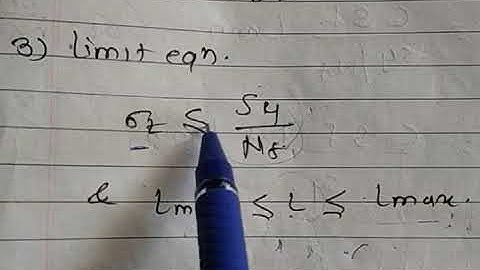 3) limit eqn.
σz ≤ Sy / Nf
& Lm ≤ L ≤ Lmax.